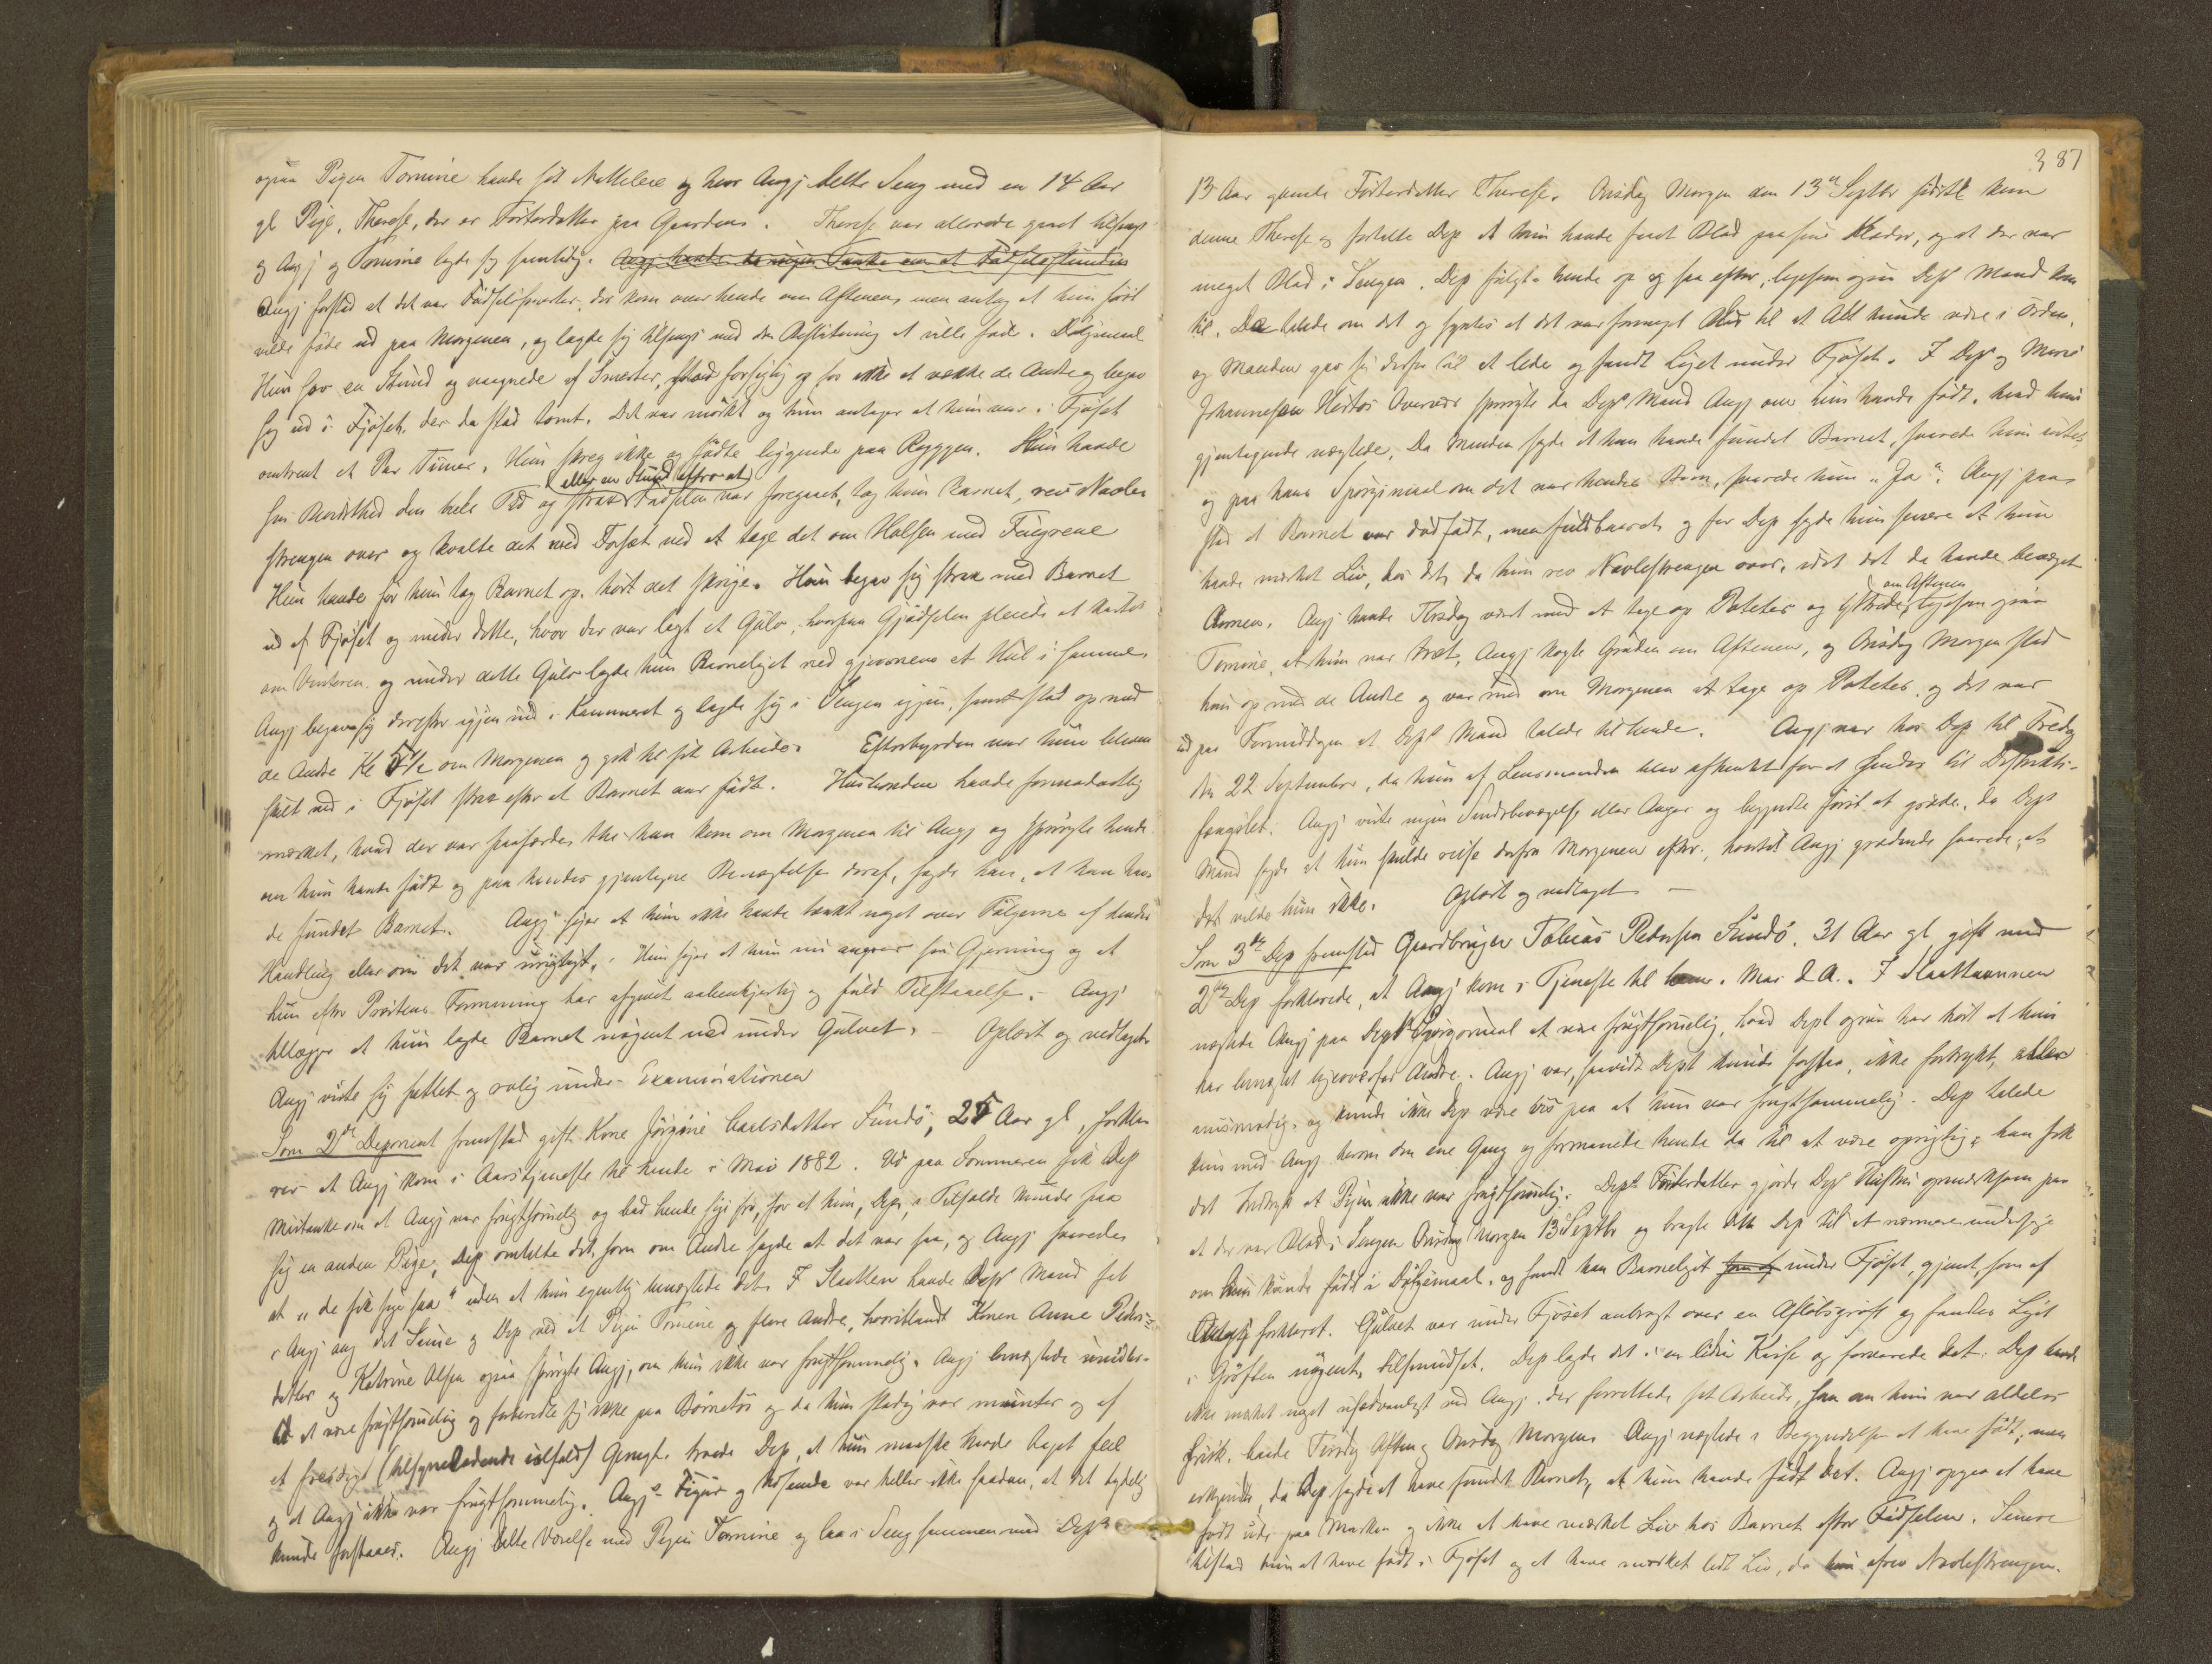 ogsaa Pigen Tomine havde sit Natteleie og hvor Angj delte Seng med en 14 Aar
gl Pige, Therese, der er Fosterdatter paa Gaarden. Therese var allerede gaaet tilsengs
og Angj og Tomine lagde sig samtidig. Angj havde da ingen Tanke om at Fødselsstunden
Angj forstod at det var Fødselssmerter, der kom over hende om Aftenen, men antog at hun først
vilde føde ud paa Morgenen, og lagde sig tilsengs med den Beslutning at ville føde i Dølgsmaal
Hun sov en Stund og vaagnede af Smerter, stod forsigtig op for ikke at vække de Andre og begav
sig ud i Fjøset, der da stod tomt. Det var mørkt og hun antager at hun var i Fjøset
omtrent et Par Timer. Hun skreg ikke og fødte liggende paa Ryggen. Hun havde
sin Bevidsthed den hele Tid og strax (eller en Stund efter at) Fødselen var foregaaet, tog hun Barnet, rev Navle
strengen over og kvalte det med Forsæt ved at tage det om Halsen med Fingrene
Hun havde før hun tog Barnet op, hørt det skrige. Hun begav sig strax med Barnet
ud af Fjøset og under dette, hvor der var lagt et Gulv, hvorpaa Gjødselen pleiede at kastes
om Vinteren, og under dette Gulv lagde hun Barneliget ned gjennem et Hul i samme.
Angj begav sig derefter igjen ind i Kammeret og lagde sig i Sengen igjen, samt stod op med
de Andre Kl 5½ om Morgenen og gik til sit Arbeide. Efterbyrden var hun bleven
skilt ved i Fjøset strax efter at Barnet var født. Husbonden havde formodentlig
mærket, hvad der var paafærde, thi han kom om Morgenen til Angj og spurgte hende
om hun havde født og paa hendes gjentagne Benægtelse deraf, sagde han, at han hav
de fundet Barnet. Angj siger at hun ikke havde tænkt noget over Følgerne af hendes
Handling eller om det var urigtigt. Hun siger at hun nu angrer sin Gjerning og at
hun efter Præstens Formaning har afgivet aabenhjertig og fuld Tilstaaelse. Angj
tillægger at hun lagde Barnet nøgent ned under Gulvet. Oplæst og vedtaget
Angj viste sig fattet og rolig under Examinationen
Som 2den Deponent fremstod gift Kone Jørgine Carlsdatter Sundø, 25 Aar gl, forkla
rer at Angj kom i Aarstjeneste til hende i Mai 1882. Ud paa Sommeren fik Dep
Mistanke om at Angj var frugtsommelig og bad hende sige fra, for at hun, Dep, i Tilfælde kunde faa
sig en anden Pige. Dep omtalte det, som om Andre sagde at det var saa, og Angj svarede
at "de fik sige saa" uden at hun egentlig benægtede det. I Slaatten havde Deps Mand fat
i Angj ang det Samme og Dep ved at Pigen Tomine og flere Andre, hvoriblandt Konen Anne Peders
datter og Katrine Olsen ogsaa spurgte Angj, om hun ikke var frugtsommelig. Angj benægtede imidler-
tid at være frugtsommelig og forberedte sig ikke paa Børnetøi og da hun stadig var munter og af
et freidigt (tilsyneladende ialfald) Gemyt, troede Dep, at hun maaske havde taget feil
og at Angj ikke var frugtsommelig. Angjs Figur og Udseende var heller ikke saadan, at det tydelig
kunde forstaaes. Angj delte Værelse med Pigen Tomine og laa i Seng sammen med Deps
387
13 Aar gamle Fosterdatter Therese. Onsdag Morgen den 13de Septbr sidstl kom
denne Therese og fortalte Dep at hun havde faaet Blod paa sine Klæder, og at der var
meget Blod i Sengen. Dep fulgte hende op og saa efter, ligesom ogsaa Deps Mand kom
til. De talede om det og syntes at det var formeget Blod til at Alt kunde være i Orden,
og Manden gav sig derfor til at lede og fandt Liget under Fjøset. I Deps og Marie
Johannesen Nesøs Overvær spurgte da Deps Mand Angj om hun havde født, hvad hun
gjentagende nægtede. Da Manden sagde at han havde fundet Barnet, svarede hun intet
og paa hans Spørgsmaal om det var hendes Barn, svarede hun "Ja". Angj paa-
stod at Barnet var dødfødt, men fuldbaaret, og for Dep sagde hun senere at hun
havde mærket Liv, hos det, da hun rev Navlestrengen over, idet det da havde bevæget
Armen. Angj havde Tirsdag været med at tage op Poteter og yttrede om Aftenen ligesom ogsaa
Tomine, at hun var træt. Angj kogte Grøden om Aftenen, og Onsdag Morgen stod
hun op med de Andre og var med om Morgenen at tage op Poteter, og det var
ud paa Formiddagen at Deps Mand talede til hende. Angj var hos Dep til Fredag
den 22 September, da hun af Lensmanden blev afhentet for at sendes til Distrikts-
fængslet. Angj viste ingen Sindsbevægelse eller Anger og begyndte først at græde, da Deps
Mand sagde at hun skulde reise derfra Morgenen efter, hvortil Angj grædende svarede, at
det vilde hun ikke. Oplæst og vedtaget —
Som 3de Dep fremstod Gaardbruger Tobias Pedersen Sundø, 31 Aar gl gift med
2den Dep forklarede, at Angj kom i Tjeneste til ham i Mai d. A. I Slaattaannen
nægtede Angj paa Deps Spørgsmaal at være frugtsommelig, hvad Dept ogsaa har hørt at hun
har benægtet ligeoverfor Andre. Angj var, saavidt Dept kunde forstaa, ikke fortrykt, eller
mismodig, og kunde ikke Dep være vis paa at hun var frugtsommelig. Dep talede
kun med Angj herom den ene Gang og formanede hende da til at være oprigtig, han fik
det Indtryk at Pigen ikke var frugtsommelig. Depts Fosterdatter gjorde Deps Hustru opmærksom paa
at der var Blod i Sengen Onsdag Morgen 13 Septbr og bragte dette Dep til at nærmere undersøge
om hun kunde født i Dølgsmaal, og fandt han Barneliget som af under Fjøset, gjemt, som af
Angj forklaret. Gulvet var under Fjøset anbragt over en Afløbsgrøft og fandtes Liget
i Grøften nøgent, tilsmudset. Dep lagde det i en liden Kasse og forvarede det. Dep havde
ikke mærket noget usædvanligt ved Angj, der forrettede sit Arbeide, som om hun var aldeles
frisk, baade Tirsdag Aften og Onsdag Morgen. Angj nægtede i Begyndelsen at have født, men
erkjendte, da Dep sagde at have fundet Barnet, at hun havde født det. Angj opgav at have
født ude paa Marken og ikke at have mærket Liv hos Barnet efter Fødselen. Senere
tilstod hun at have født i Fjøset og at have mærket lidt Liv, da hun afrev Navlestrengen.